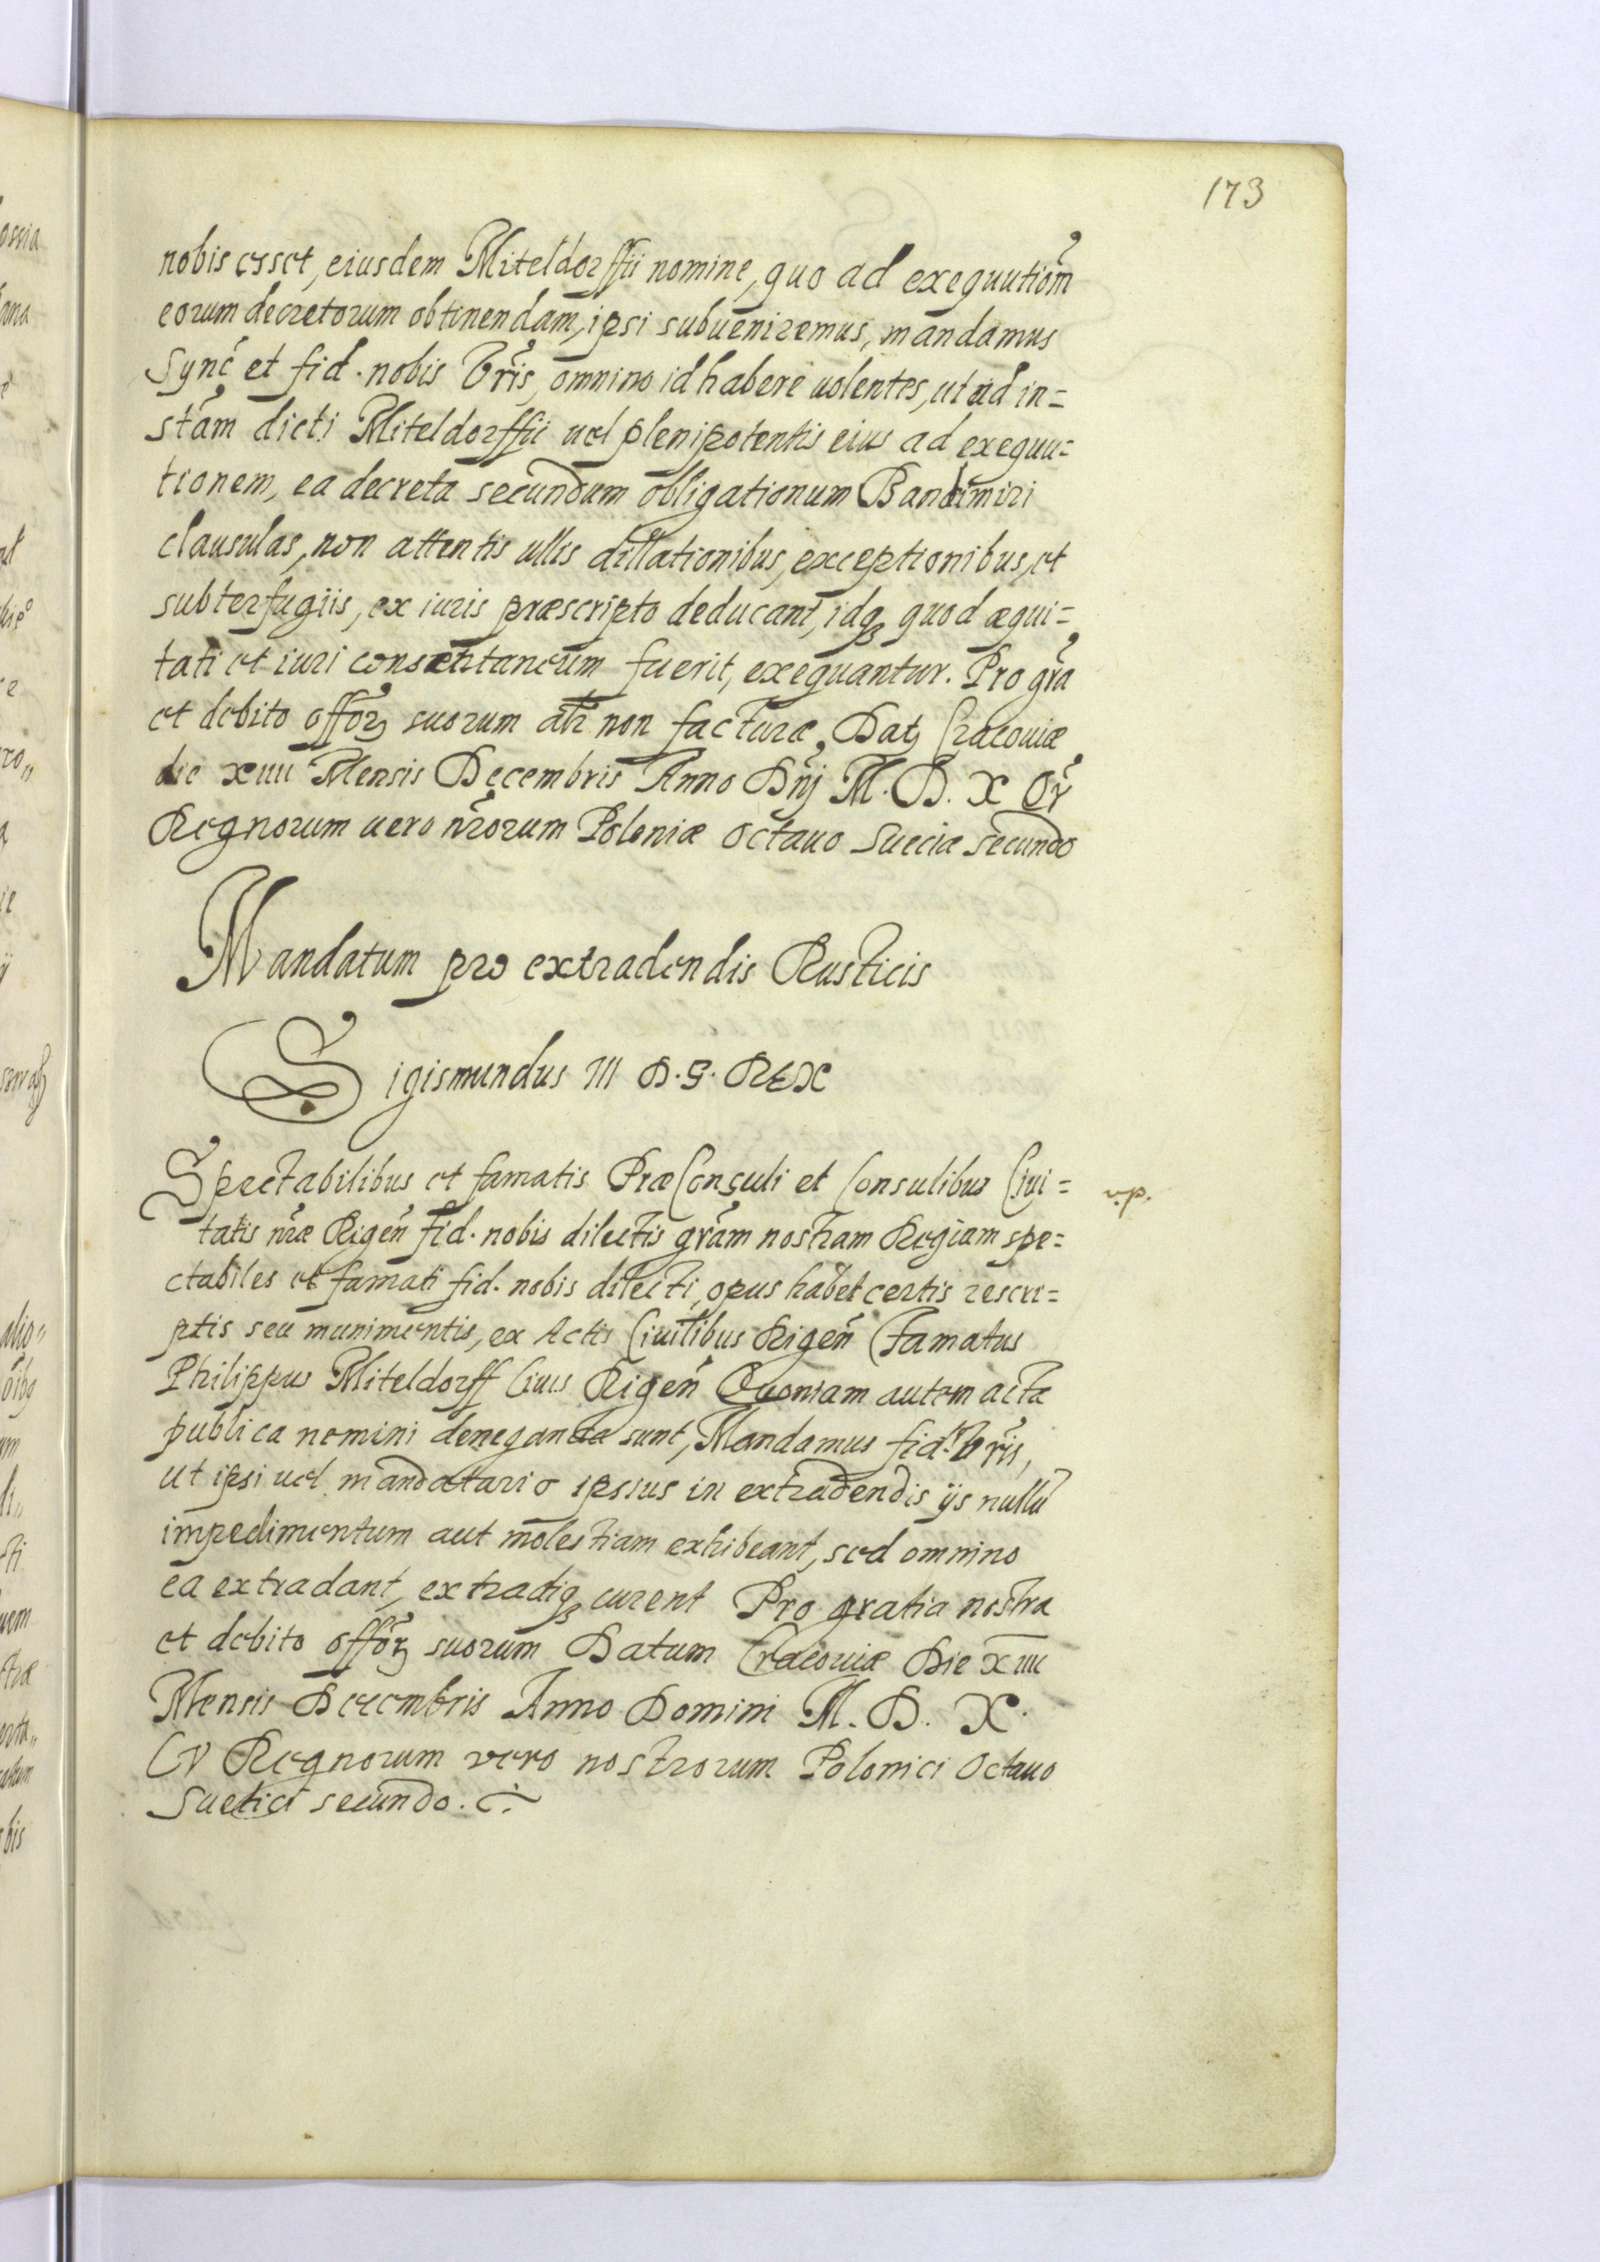 173
nobis esset, eiusdem Miteldorffii nomine, quo ad exequutiom̃
eorum decretorum obtinendam, ipsi subueniremus, mandamus
Sync̃ et fid. nobis Vr̃is, omnino id habere uolentes, ut ad in=
stãm dicti Miteldorffii uel plenipotentis eius ad exequu=
tionem, ea decreta secundum obligationum Bandimiri
clausulas, non attentis ullis dillationibus, exceptionibus, et
subterfugiis, ex iuris præscripto deducant, idqꝫ quod æqui=
tati et iuri consentaneum fuerit, exequantur. Pro gr̃a
et debito offõrꝫ suorum alr̃ non facturæ. Datꝫ Cracouiæ
die xiiii Mensis Decembris Anno Dñj M. D. X Cṽ
Regnorum uero nr̃orum Poloniæ octauo Sueciæ secundo
Mandatum pro extradendis Rusticis
Sigismundus III D. G. REX
Spectabilibus et famatis PræConsuli et Consulibus Ciui=
v.p.
tatis nr̃æ Rigeñ fid. nobis dilectis gr̃am nostram Regiam spe=
ctabiles et famati fid. nobis dilecti, opus habet certis rescri=
ptis seu munimentis, ex Actis Ciuilibus Rigeñ Famatus
Philippus Miteldorff Ciuis Rigeñ Quoniam autem acta
publica nemini deneganda sunt, Mandamus fid. Vr̃is,
ut ipsi uel mandatario ipsius in extradendis ijs nullũ
impedimentum aut molestiam exhibeant, sed omnino
ea extradant, extradiqꝫ curent Pro gratia nostra
et debito offõrꝫ suorum Datum Cracouiæ Die xiiii
Mensis Decembris Anno Domini M. D. X.
CV Regnorum vero nostrorum Polonici Octauo
Suetici secundo.